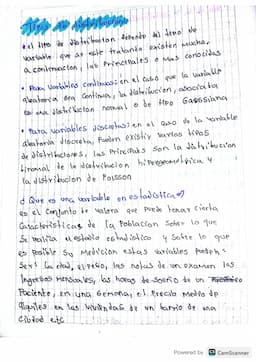 Tipo de distribucion
• el tipo de distribucion depende del tipo de
variable que se este tratando existen muchas,
a continuacion, las principales o mas conocidas
• Para variables continuas: en el caso que la variable
aleatoria sea continua, la distribucion, asociada
es una distribucion normal o de tipo Gaussiana
• Para variables discretas: en el caso de la variable
aleatoria discreta, Pueden existir varios tipos
de distribuciones, las Principales son la distribucion
binomial de la distribucion hipergeometrica y
la distribucion de Poisson
d Que es una variable en estadistica
es el conjunto de valore que puede tener cierta
Caracteristicas de la Poblacion sobre lo que
Se realiza el estudio estadistico y sobre lo que
es posible su Medicion estas variables pueden
Ser: la edad, el peso, las notas de un examen los
Ingresos mensuales, las horas de sueño de un
Paciente, en una semana, el precio medio de
alquiles en las viviendas de un barrio de una
Ciudad etc
Powered by CS CamScanner